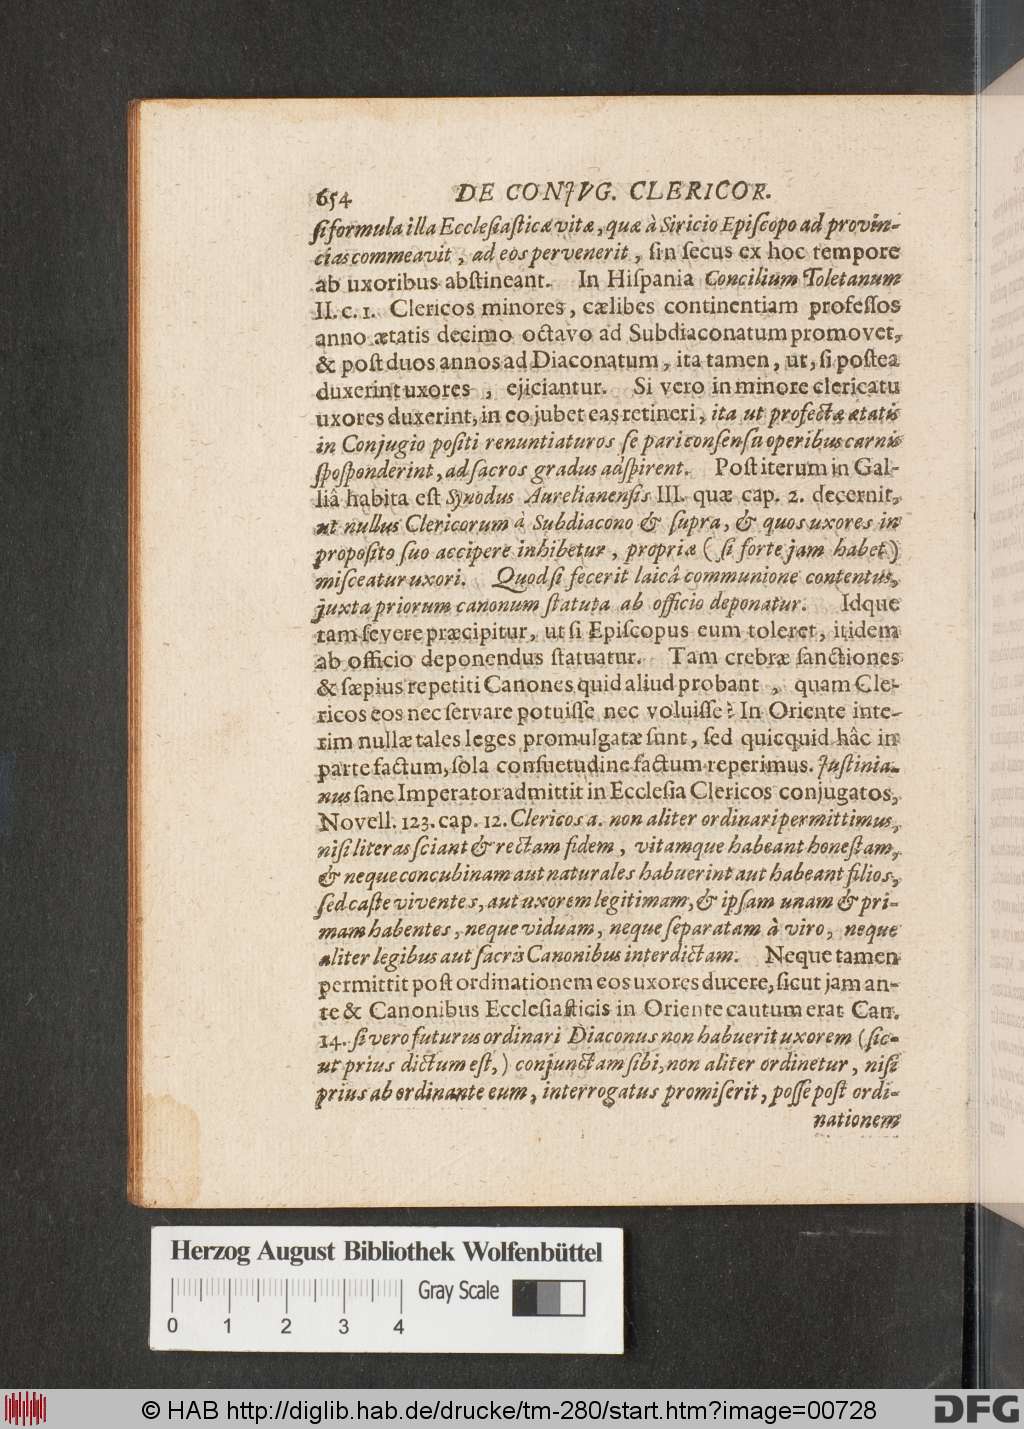 654 DE CONJVG. CLERICOR.
si formula illa Ecclesiasticæ vitæ, quæ à Siricio Episcopo ad provin-
cias commeavit, ad eos pervenerit, sin secus ex hoc tempore
ab uxoribus abstineant. In Hispania Concilium Toletanum
II. c. 1. Clericos minores, cælibes continentiam professos
anno ætatis decimo octavo ad Subdiaconatum promovet,
& post duos annos ad Diaconatum, ita tamen, ut, si postea
duxerint uxores, ejiciantur. Si vero in minore clericatu
uxores duxerint, in eo jubet eas retineri, ita ut profectæ ætatis
in Conjugio positi renuntiaturos se pari consensu operibus carnis
sposponderint, ad sacros gradus adspirent. Post iterum in Gal-
liâ habita est Synodus Aurelianensis III. quæ cap. 2. decernit,
ut nullus Clericorum à Subdiacono & supra, & quos uxores in
proposito suo accipere inhibetur, propriæ ( si forte jam habet)
misceatur uxori. Quod si fecerit laicâ communione contentus,
juxta priorum canonum statuta ab officio deponatur. Idque
tam severe præcipitur, ut si Episcopus eum toleret, itidem
ab officio deponendus statuatur. Tam crebræ sanctiones
& sæpius repetiti Canones quid aliud probant, quam Cle-
ricos eos nec servare potuisse nec voluisse? In Oriente inte-
rim nullæ tales leges promulgatæ sunt, sed quicquid hâc in
parte factum, sola consuetudine factum reperimus. Justinia-
nus sane Imperator admittit in Ecclesia Clericos conjugatos,
Novell. 123. cap. 12. Clericos a. non aliter ordinari permittimus,
nisi literas sciant & rectam fidem, vitamque habeant honestam,
& neque concubinam aut naturales habuerint aut habeant filios,
sed caste viventes, aut uxorem legitimam, & ipsam unam & pri-
mam habentes, neque viduam, neque separatam à viro, neque
aliter legibus aut sacris Canonibus interdictam. Neque tamen
permittit post ordinationem eos uxores ducere, sicut jam an-
te & Canonibus Ecclesiasticis in Oriente cautum erat Can.
14. si vero futurus ordinari Diaconus non habuerit uxorem (sic-
ut prius dictum est,) conjunctam sibi, non aliter ordinetur, nisi
prius ab ordinante eum, interrogatus promiserit, posse post ordi-
nationem
Herzog August Bibliothek Wolfenbüttel
Gray Scale
0 1 2 3 4
© HAB http://diglib.hab.de/drucke/tm-280/start.htm?image=00728
DFG